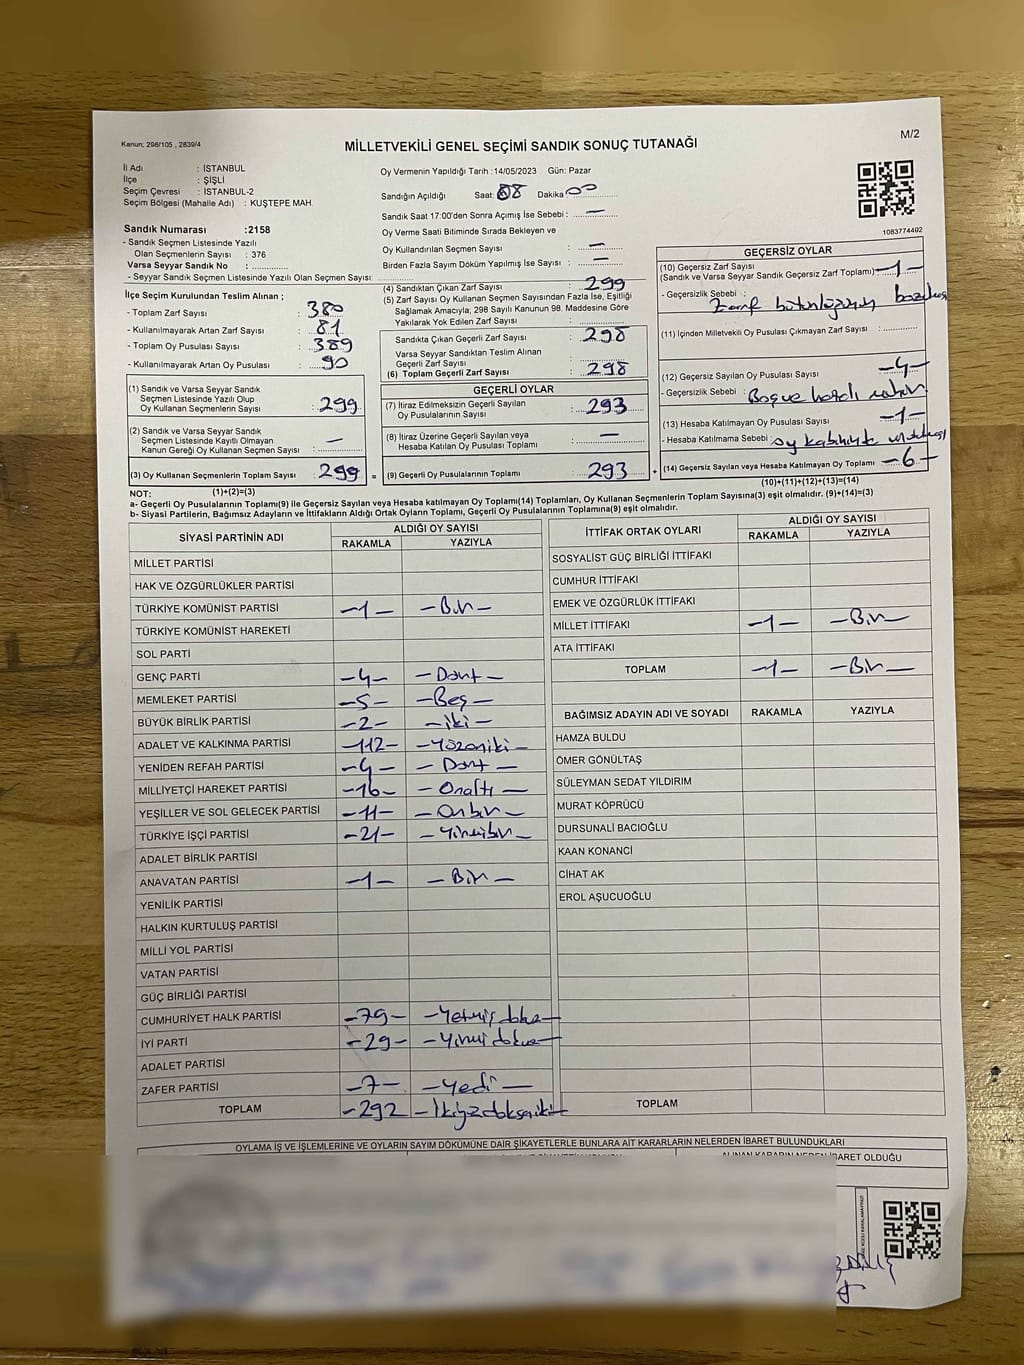 Kanun; 298/105 , 2839/4
MİLLETVEKİLİ GENEL SEÇİMİ SANDIK SONUÇ TUTANAĞI
M/2
İl Adı : İSTANBUL
İlçe : ŞİŞLİ
Seçim Çevresi : İSTANBUL-2
Seçim Bölgesi (Mahalle Adı) : KUŞTEPE MAH
Sandık Numarası :2158
- Sandık Seçmen Listesinde Yazılı
Olan Seçmenlerin Sayısı : 376
Varsa Seyyar Sandık No : ..............
- Seyyar Sandık Seçmen Listesinde Yazılı Olan Seçmen Sayısı:
İlçe Seçim Kurulundan Teslim Alınan ;
- Toplam Zarf Sayısı : 380
- Kullanılmayarak Artan Zarf Sayısı : 81
- Toplam Oy Pusulası Sayısı : 389
- Kullanılmayarak Artan Oy Pusulası : 90
(1) Sandık ve Varsa Seyyar Sandık
Seçmen Listesinde Yazılı Olup
Oy Kullanan Seçmenlerin Sayısı : 299
(2) Sandık ve Varsa Seyyar Sandık
Seçmen Listesinde Kayıtlı Olmayan
Kanun Gereği Oy Kullanan Seçmen Sayısı : —
(3) Oy Kullanan Seçmenlerin Toplam Sayısı : 299 =
(1)+(2)=(3)
Oy Vermenin Yapıldığı Tarih :14/05/2023 Gün: Pazar
Sandığın Açıldığı Saat: 08 Dakika 00
Sandık Saat 17:00'den Sonra Açımış İse Sebebi : —
Oy Verme Saati Bitiminde Sırada Bekleyen ve
Oy Kullandırılan Seçmen Sayısı : —
Birden Fazla Sayım Döküm Yapılmış İse Sayısı : —
(4) Sandıktan Çıkan Zarf Sayısı : 299
(5) Zarf Sayısı Oy Kullanan Seçmen Sayısından Fazla İse, Eşitliği
Sağlamak Amacıyla, 298 Sayılı Kanunun 98. Maddesine Göre
Yakılarak Yok Edilen Zarf Sayısı :
Sandıkta Çıkan Geçerli Zarf Sayısı : 298
Varsa Seyyar Sandıktan Teslim Alınan
Geçerli Zarf Sayısı :
(6) Toplam Geçerli Zarf Sayısı : 298
GEÇERLİ OYLAR
(7) İtiraz Edilmeksizin Geçerli Sayılan
Oy Pusulalarının Sayısı : 293
(8) İtiraz Üzerine Geçerli Sayılan veya
Hesaba Katılan Oy Pusulası Toplamı : —
(9) Geçerli Oy Pusulalarının Toplamı : 293 +
1083774492
GEÇERSİZ OYLAR
(10) Geçersiz Zarf Sayısı
(Sandık ve Varsa Seyyar Sandık Geçersiz Zarf Toplamı) -1-
- Geçersizlik Sebebi : Zarf bütünlüğünün
(11) İçinden Milletvekili Oy Pusulası Çıkmayan Zarf Sayısı :
(12) Geçersiz Sayılan Oy Pusulası Sayısı -4-
- Geçersizlik Sebebi :
(13) Hesaba Katılmayan Oy Pusulası Sayısı -1-
- Hesaba Katılmama Sebebi
(14) Geçersiz Sayılan veya Hesaba Katılmayan Oy Toplamı -6-
(10)+(11)+(12)+(13)=(14)
NOT:
a- Geçerli Oy Pusulalarının Toplamı(9) ile Geçersiz Sayılan veya Hesaba katılmayan Oy Toplamı(14) Toplamları, Oy Kullanan Seçmenlerin Toplam Sayısına(3) eşit olmalıdır. (9)+(14)=(3)
b- Siyasi Partilerin, Bağımsız Adayların ve İttifakların Aldığı Ortak Oyların Toplamı, Geçerli Oy Pusulalarının Toplamına(9) eşit olmalıdır.
SİYASİ PARTİNİN ADI ALDIĞI OY SAYISI
RAKAMLA YAZIYLA
MİLLET PARTİSİ
HAK VE ÖZGÜRLÜKLER PARTİSİ
TÜRKİYE KOMÜNİST PARTİSİ -1- -Bir-
TÜRKİYE KOMÜNİST HAREKETİ
SOL PARTİ
GENÇ PARTİ -4- -Dört-
MEMLEKET PARTİSİ -5- -Beş-
BÜYÜK BİRLİK PARTİSİ -2- -iki-
ADALET VE KALKINMA PARTİSİ -112- -Yüzoniki-
YENİDEN REFAH PARTİSİ -4- -Dört-
MİLLİYETÇİ HAREKET PARTİSİ -16- -Onaltı-
YEŞİLLER VE SOL GELECEK PARTİSİ -11- -Onbir-
TÜRKİYE İŞÇİ PARTİSİ -21- -Yirmibir-
ADALET BİRLİK PARTİSİ
ANAVATAN PARTİSİ -1- -Bir-
YENİLİK PARTİSİ
HALKIN KURTULUŞ PARTİSİ
MİLLİ YOL PARTİSİ
VATAN PARTİSİ
GÜÇ BİRLİĞİ PARTİSİ
CUMHURİYET HALK PARTİSİ -79- -Yetmiş dokuz-
İYİ PARTİ -29- -Yirmi dokuz-
ADALET PARTİSİ
ZAFER PARTİSİ -7- -Yedi-
TOPLAM -292 -İkiyüzdoksaniki-
İTTİFAK ORTAK OYLARI ALDIĞI OY SAYISI
RAKAMLA YAZIYLA
SOSYALİST GÜÇ BİRLİĞİ İTTİFAKI
CUMHUR İTTİFAKI
EMEK VE ÖZGÜRLÜK İTTİFAKI
MİLLET İTTİFAKI -1- -Bir-
ATA İTTİFAKI
TOPLAM -1- -Bir-
BAĞIMSIZ ADAYIN ADI VE SOYADI RAKAMLA YAZIYLA
HAMZA BULDU
ÖMER GÖNÜLTAŞ
SÜLEYMAN SEDAT YILDIRIM
MURAT KÖPRÜCÜ
DURSUNALİ BACIOĞLU
KAAN KONANCİ
CİHAT AK
EROL AŞUCUOĞLU
TOPLAM
OYLAMA İŞ VE İŞLEMLERİNE VE OYLARIN SAYIM DÖKÜMÜNE DAİR ŞİKAYETLERLE BUNLARA AİT KARARLARIN NELERDEN İBARET BULUNDUKLARI
ALINAN KARARIN NEDEN İBARET OLDUĞU